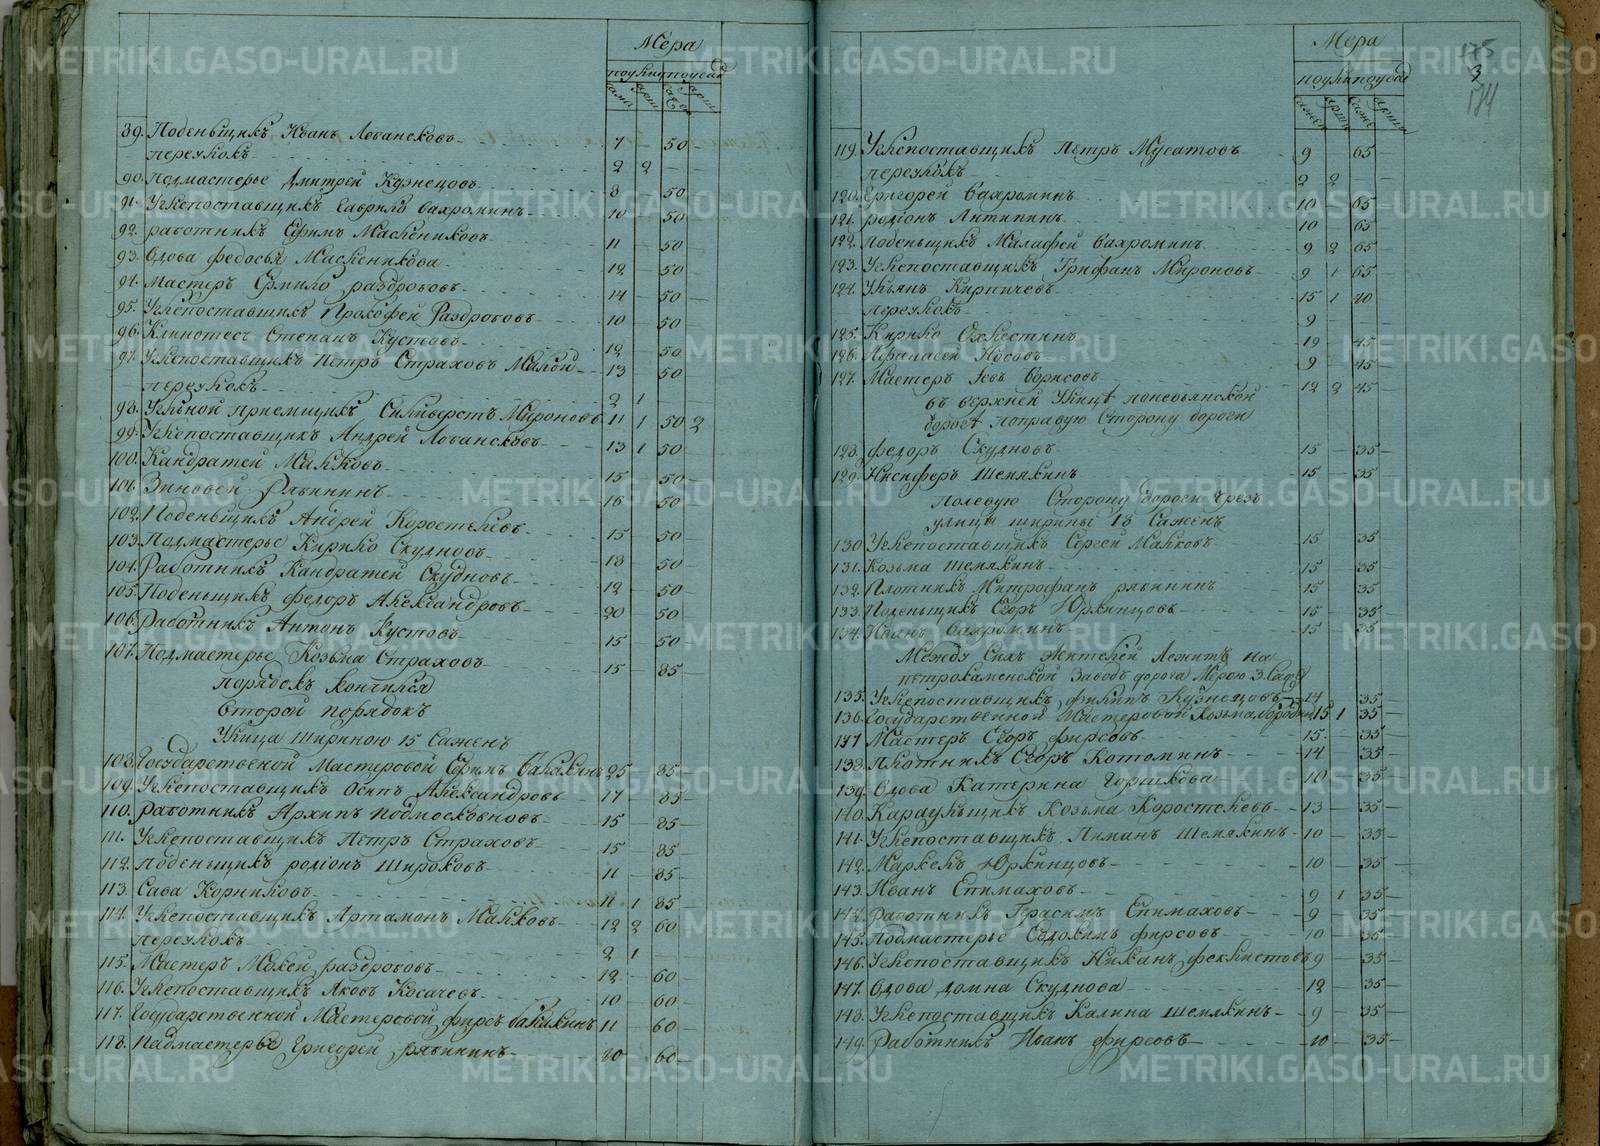 Мера
по улиц по усад
39. Поденьщикъ Иванъ Лобансковъ 7 50
переулокъ 2 2
90. Подмастерье Дмитрей Кузнецовъ 8 50
91. Углепоставщикъ Гаврило Вахроминъ 10 50
92. работникъ Ефимъ Маслениковъ 11 50
93. Вдова федосья Масленикова 12 50
94. Мастеръ Ермило раздроговъ 14 50
95. Углепоставщикъ Прокофей Раздроговъ 10 50
96. Степанъ Кустовъ 12 50
97. Углепоставщикъ Петръ Страховъ Малой 13 50
переулокъ 2 1
98. Угльной приемщикъ Сильверстъ Мироновъ 11 1 50 2
99. Углепоставщикъ Андрей Лобансковъ 13 1 50
100. Кандратей Малковъ 15 50
101. Зиновей Рябининъ 16 50
102. Поденьщикъ Андрей Коростелевъ 15 50
103. Подмастерье Кирило Скудновъ 18 50
104. Работникъ Кандратей Скудновъ 12 50
105. Поденьщикъ федоръ Александровъ 20 50
106. Работникъ Антонъ Кустовъ 15 50
107. Подмастерье Козьма Страховъ 15 85
порядокъ кончился
Второй порядокъ
Улица шириною 15 Саженъ
108. Государственной Мастеровой Ефимъ Балакинъ 25 85
109. Углепоставщикъ Осипъ Александровъ 17 85
110. работникъ Архипъ Подмосковновъ 15 85
111. Углепоставщикъ Петръ Страховъ 15 85
112. Поденьщикъ родіонъ Широковъ 11 85
113. Сава Корниловъ 11 1 85
114. Углепоставщикъ Артамонъ Малковъ 12 2 60
переулокъ 2 1
115. Мастеръ Мокей раздроговъ 12 60
116. Углепоставщикъ Яковъ Косачевъ 10 60
117. Государственной Мастеровой фирсъ Балакинъ 11 60
118. Падмастерье Григорей рябининъ 20 60
Мера
по ули по усад
саже арши саже арши
175
3
174
119. Углепоставщикъ Петръ Мусатовъ 9 65
переулокъ 2 2
120. Григорей Вахроминъ 10 65
121. родіонъ Антипинъ 10 65
122. Поденьщикъ Малафей Вахроминъ 9 2 65
123. Углепоставщикъ Трифанъ Мироновъ 9 1 65
124. Ульянъ Кирпичевъ 15 1 40
переулокъ 9
125. Кирило 19 45
126. Афанасей Носовъ 9 45
127. Мастеръ Іевъ Борисовъ 12 2 45
въ верхней Улицѣ поневьянской
дорогѣ поправую Сторону дороги
128. федоръ Скудновъ 15 35
129. Никифоръ шемякинъ 15 35
полевую Сторону дороги чрезъ
улицы ширины 18 Саженъ
130 Углепоставщикъ Сергей Малковъ 15 35
131. Козьма шемякинъ 15 35
132. Плотникъ Митрофанъ рябининъ 15 35
133. Поденьщикъ Егоръ Юркинцовъ 15 35
134. Иванъ Вахроминъ 15 35
Между Сихъ жителей Лежитъ на
петрокаменской Заводъ дорога Мерою 3. Саж.
135. Углепоставщикъ филипъ Кузнецовъ 14 35
136. Государственной Мастеровой Козьма Бородинъ 15 1 35
137 Мастеръ Егоръ фирсовъ 15 35
138. Плотникъ Егоръ Котоминъ 14 35
139. Вдова Катерина Горшкова 10 35
140. Караульщикъ Козьма Коростелевъ 13 35
141. Углепоставщикъ Пиманъ Шемякинъ 10 35
142. Маркелъ Юркинцовъ 10 35
143. Иванъ Епимаховъ 9 1 35
144. Работникъ Герасимъ Епимаховъ 9 35
145. Подмастерье Евдокимъ фирсовъ 10 35
146. Углепоставщикъ Никанъ феклистовъ 9 35
147. Вдова домна Скуднова 12 35
148. Углепоставщикъ Калина шемякинъ 9 35
149. Работникъ Иванъ фирсовъ 10 35
METRIKI.GASO-URAL.RU